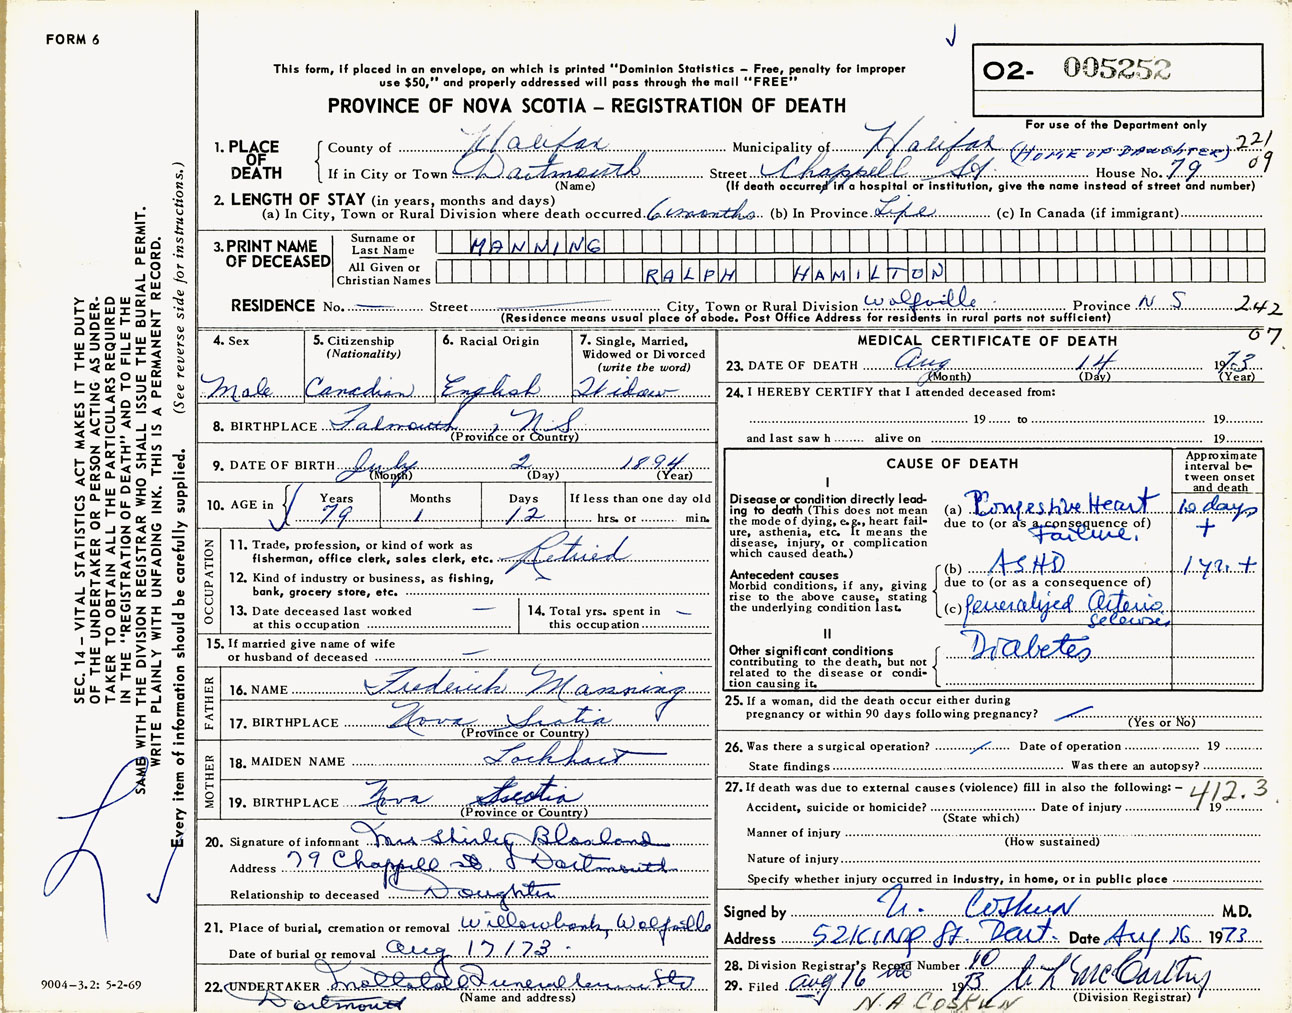 FORM 6
This form, if placed in an envelope, on which is printed "Dominion Statistics – Free, penalty for improper
use $50," and properly addressed will pass through the mail "FREE"
PROVINCE OF NOVA SCOTIA – REGISTRATION OF DEATH
O2- 005252
For use of the Department only
221
09
1. PLACE OF DEATH
County of Halifax Municipality of Halifax (HOME OF DAUGHTER)
If in City or Town Dartmouth Street Chappell St House No. 79
(Name) (If death occurred in a hospital or institution, give the name instead of street and number)
2. LENGTH OF STAY (in years, months and days)
(a) In City, Town or Rural Division where death occurred. 6 months (b) in Province Life (c) in Canada (if immigrant)
3. PRINT NAME OF DECEASED
Surname or Last Name MANNING
All Given or Christian Names RALPH HAMILTON
RESIDENCE No. — Street — City, Town or Rural Division Wolfville Province N S
(Residence means usual place of abode. Post Office Address for residents in rural parts not sufficient)
242
07.
4. Sex
Male
5. Citizenship
(Nationality)
Canadian
6. Racial Origin
English
7. Single, Married,
Widowed or Divorced
(write the word)
Widow
8. BIRTHPLACE Falmouth, N.S
(Province or Country)
9. DATE OF BIRTH July 2 1894
(Month) (Day) (Year)
10. AGE in
Years Months Days If less than one day old
79 1 12 hrs. or min.
OCCUPATION
11. Trade, profession, or kind of work as
fisherman, office clerk, sales clerk, etc. Retried
12. Kind of industry or business, as fishing,
bank, grocery store, etc. —
13. Date deceased last worked
at this occupation —
14. Total yrs. spent in
this occupation —
15. If married give name of wife
or husband of deceased —
FATHER
16. NAME Frederick Manning
17. BIRTHPLACE Nova Scotia
(Province or Country)
MOTHER
18. MAIDEN NAME Lockhart
19. BIRTHPLACE Nova Scotia
(Province or Country)
20. Signature of informant Mrs Shirley
Address 79 Chappell St Dartmouth
Relationship to deceased Daughter
21. Place of burial, cremation or removal Willowbank, Wolfville
Date of burial or removal Aug 17/73.
22. UNDERTAKER Funeral Ltd
(Name and address)
Dartmouth
MEDICAL CERTIFICATE OF DEATH
23. DATE OF DEATH Aug 14 1973
(Month) (Day) (Year)
24. I HEREBY CERTIFY that I attended deceased from:
19 to 19
and last saw h alive on 19
CAUSE OF DEATH
Approximate
interval be-
tween onset
and death
I
Disease or condition directly lead-
ing to death (This does not mean
the mode of dying, e.g., heart fail-
ure, asthenia, etc. It means the
disease, injury, or complication
which caused death.)
(a) Congestive Heart
due to (or as a consequence of)
Failure.
10 days
+
Antecedent causes
Morbid conditions, if any, giving
rise to the above cause, stating
the underlying condition last.
(b) ASHD
due to (or as a consequence of)
1 yr. +
(c) generalized Arterio
Sclerosis
II
Other significant conditions
contributing to the death, but not
related to the disease or condi-
tion causing it.
Diabetes
25. If a woman, did the death occur either during
pregnancy or within 90 days following pregnancy?
(Yes or No)
26. Was there a surgical operation? Date of operation 19
State findings Was there an autopsy?
27. If death was due to external causes (violence) fill in also the following: – 412.3
Accident, suicide or homicide? Date of injury 19
(State which)
Manner of injury
(How sustained)
Nature of injury
Specify whether injury occurred in industry, in home, or in public place
Signed by N. Coskun M.D.
Address 52 King St. Dart. Date Aug 16 1973
28. Division Registrar's Record Number 10
29. Filed Aug 16 1973 McCarthy
(Division Registrar)
N. A COSKUN
SEC. 14 – VITAL STATISTICS ACT MAKES IT THE DUTY
OF THE UNDERTAKER OR PERSON ACTING AS UNDER-
TAKER TO OBTAIN ALL THE PARTICULARS REQUIRED
IN THE "REGISTRATION OF DEATH" AND TO FILE THE
SAME WITH THE DIVISION REGISTRAR WHO SHALL ISSUE THE BURIAL PERMIT.
WRITE PLAINLY WITH UNFADING INK. THIS IS A PERMANENT RECORD.
Every item of information should be carefully supplied. (See reverse side for instructions.)
9004-3.2: 5-2-69